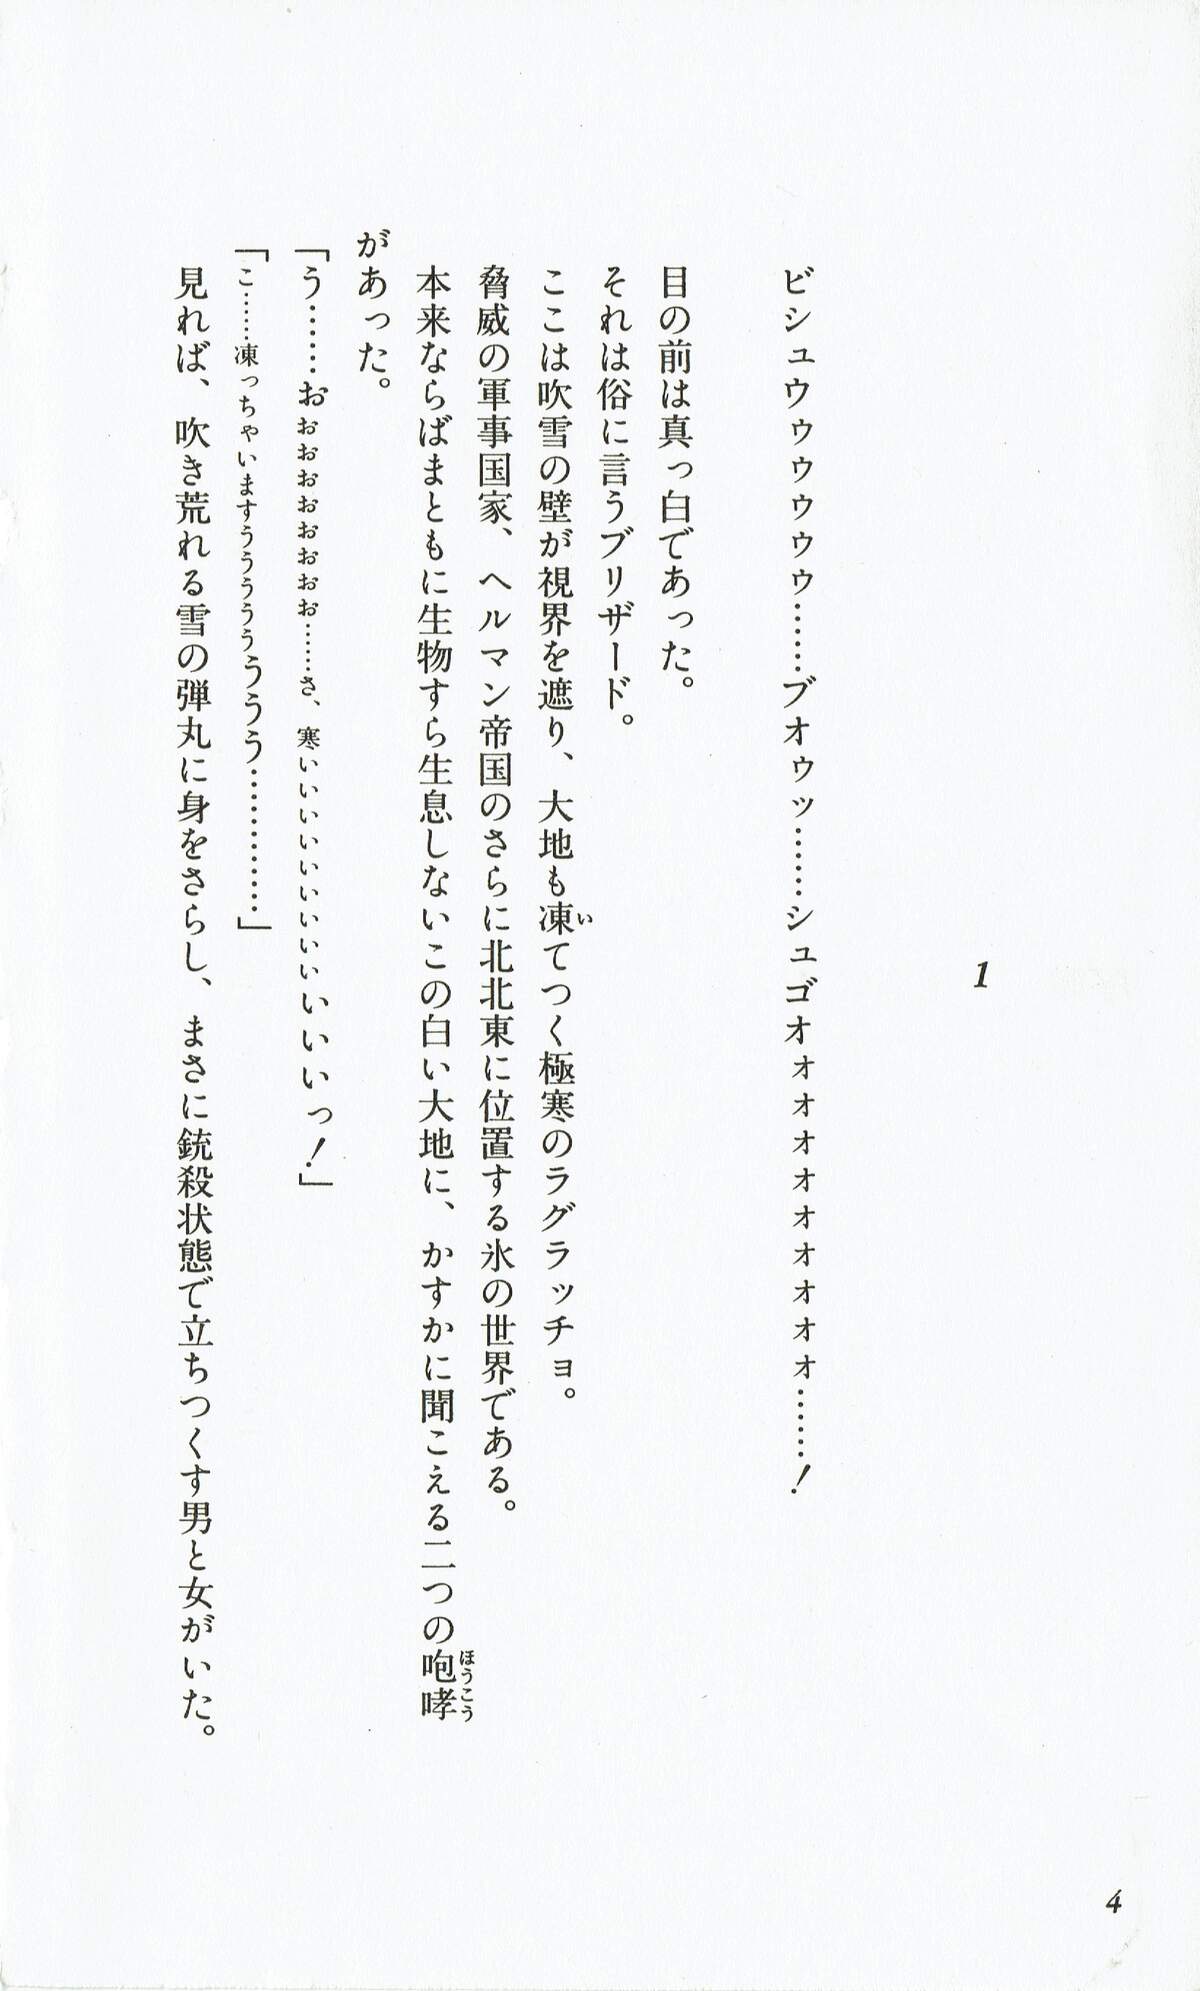 1
ビシュウゥゥゥゥゥ……ブオゥッ……シュゴオォォォォォォォォォ……！
目の前は真っ白であった。
それは俗に言うブリザード。
ここは吹雪の壁が視界を遮り、大地も凍てつく極寒のラグラッチョ。
脅威の軍事国家、ヘルマン帝国のさらに北北東に位置する氷の世界である。
本来ならばまともに生物すら生息しないこの白い大地に、かすかに聞こえる二つの咆哮
があった。
「う……おぉぉぉぉぉぉぉぉ……さ、寒いぃぃぃぃぃぃぃぃいいいっ！」
「こ……凍っちゃいますうぅぅぅぅううう…………」
見れば、吹き荒れる雪の弾丸に身をさらし、まさに銃殺状態で立ちつくす男と女がいた。
4